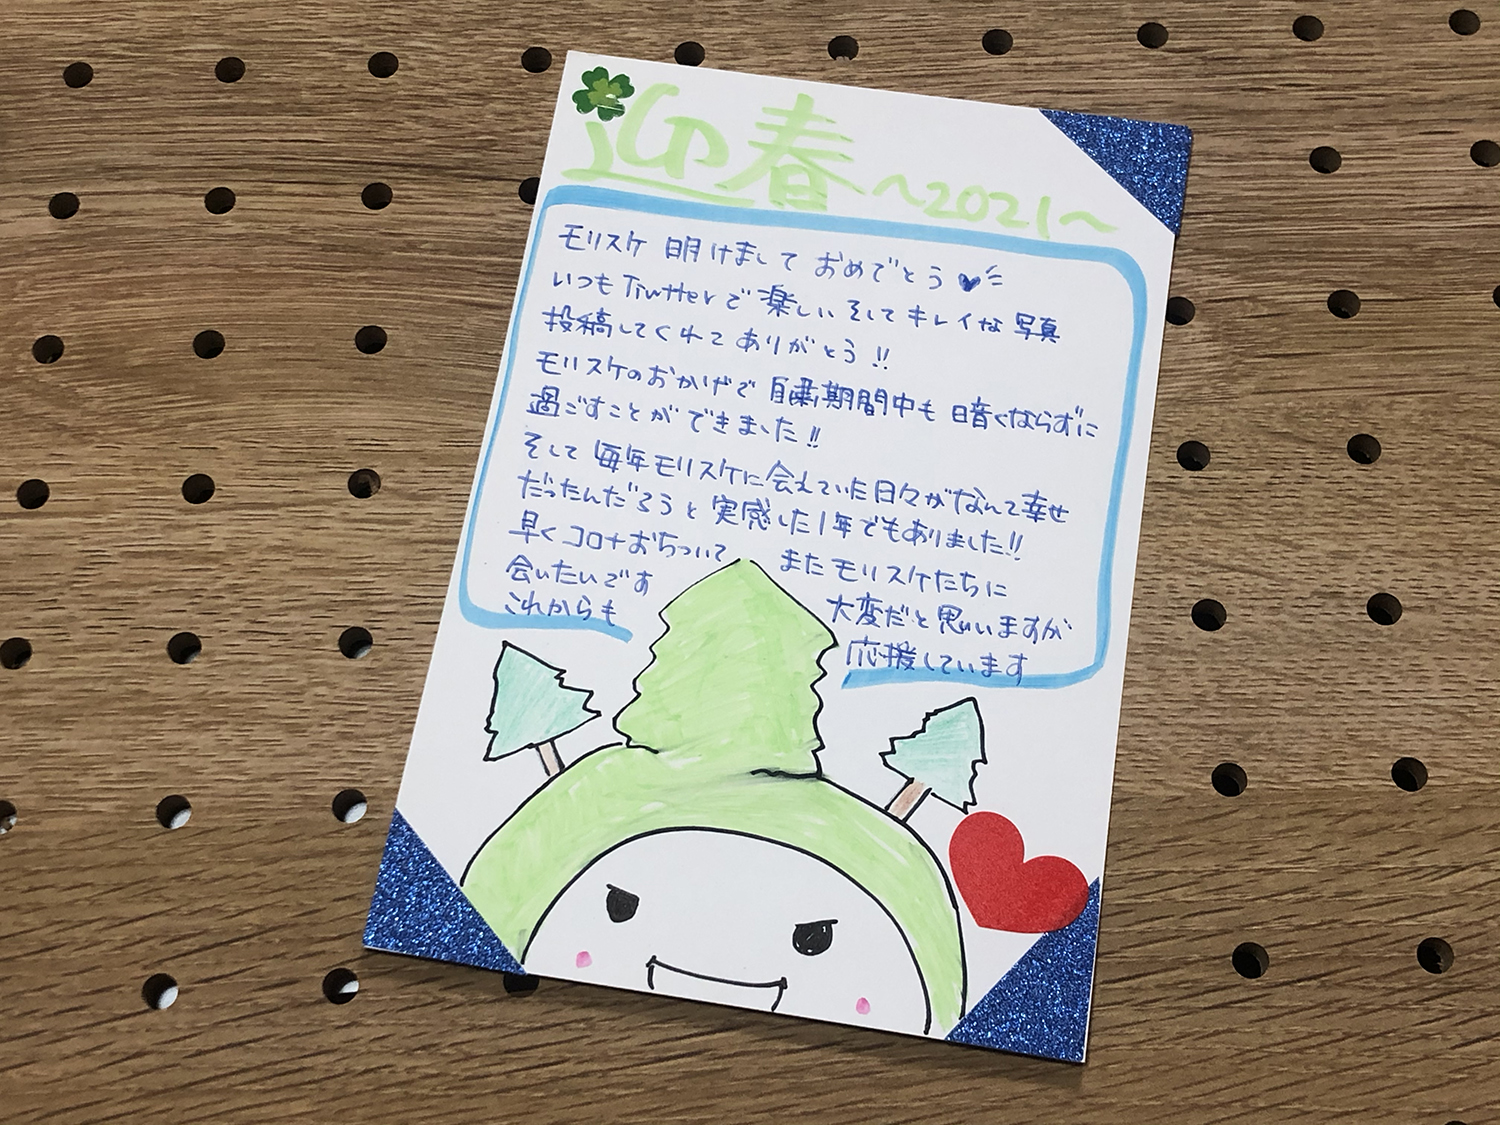 迎春 ～2021～
モリスケ 明けまして おめでとう
いつもTwitterで楽しい そして キレイな 写真
投稿してくれて ありがとう!!
モリスケのおかげで 自粛期間中も 暗くならずに
過ごすことができました!!
そして 毎年モリスケに会えていた日々がなんて幸せ
だったんだろうと 実感した1年でもありました!!
早くコロナおちついて またモリスケたちに
会いたいです 大変だと思いますが
これからも 応援しています